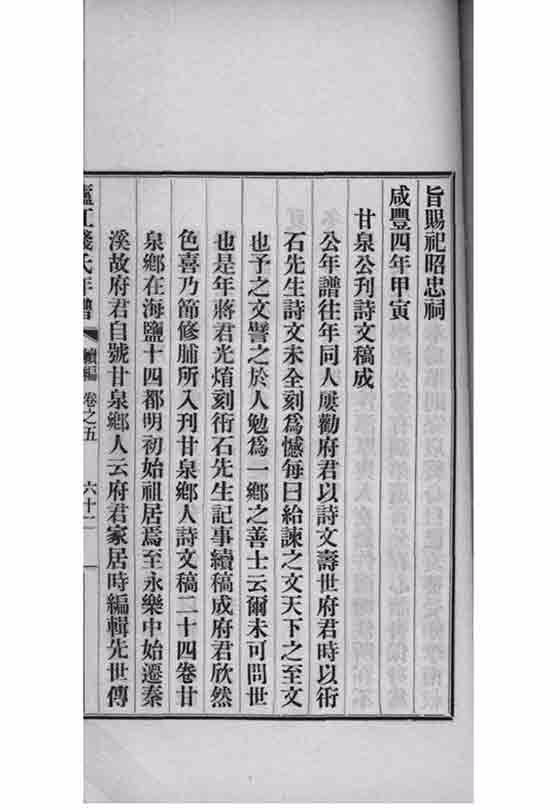 旨賜祀昭忠祠
咸豐四年甲寅
甘泉公刊詩文稿成
公年譜往年同人屢勸府君以詩文壽世府君時以衎
石先生詩文未全刻爲憾每曰給諫之文天下之至文
也予之文譬之於人勉爲一鄉之善士云爾未可問世
也是年蔣君光焴刻衎石先生記事續稿成府君欣然
色喜乃節修脯所入刊甘泉鄉人詩文稿二十四卷甘
泉鄉在海鹽十四都明初始祖居焉至永樂中始遷秦
溪故府君自號甘泉鄉人云府君家居時編輯先世傳
廬江錢氏年譜 續編 卷之五 六十一